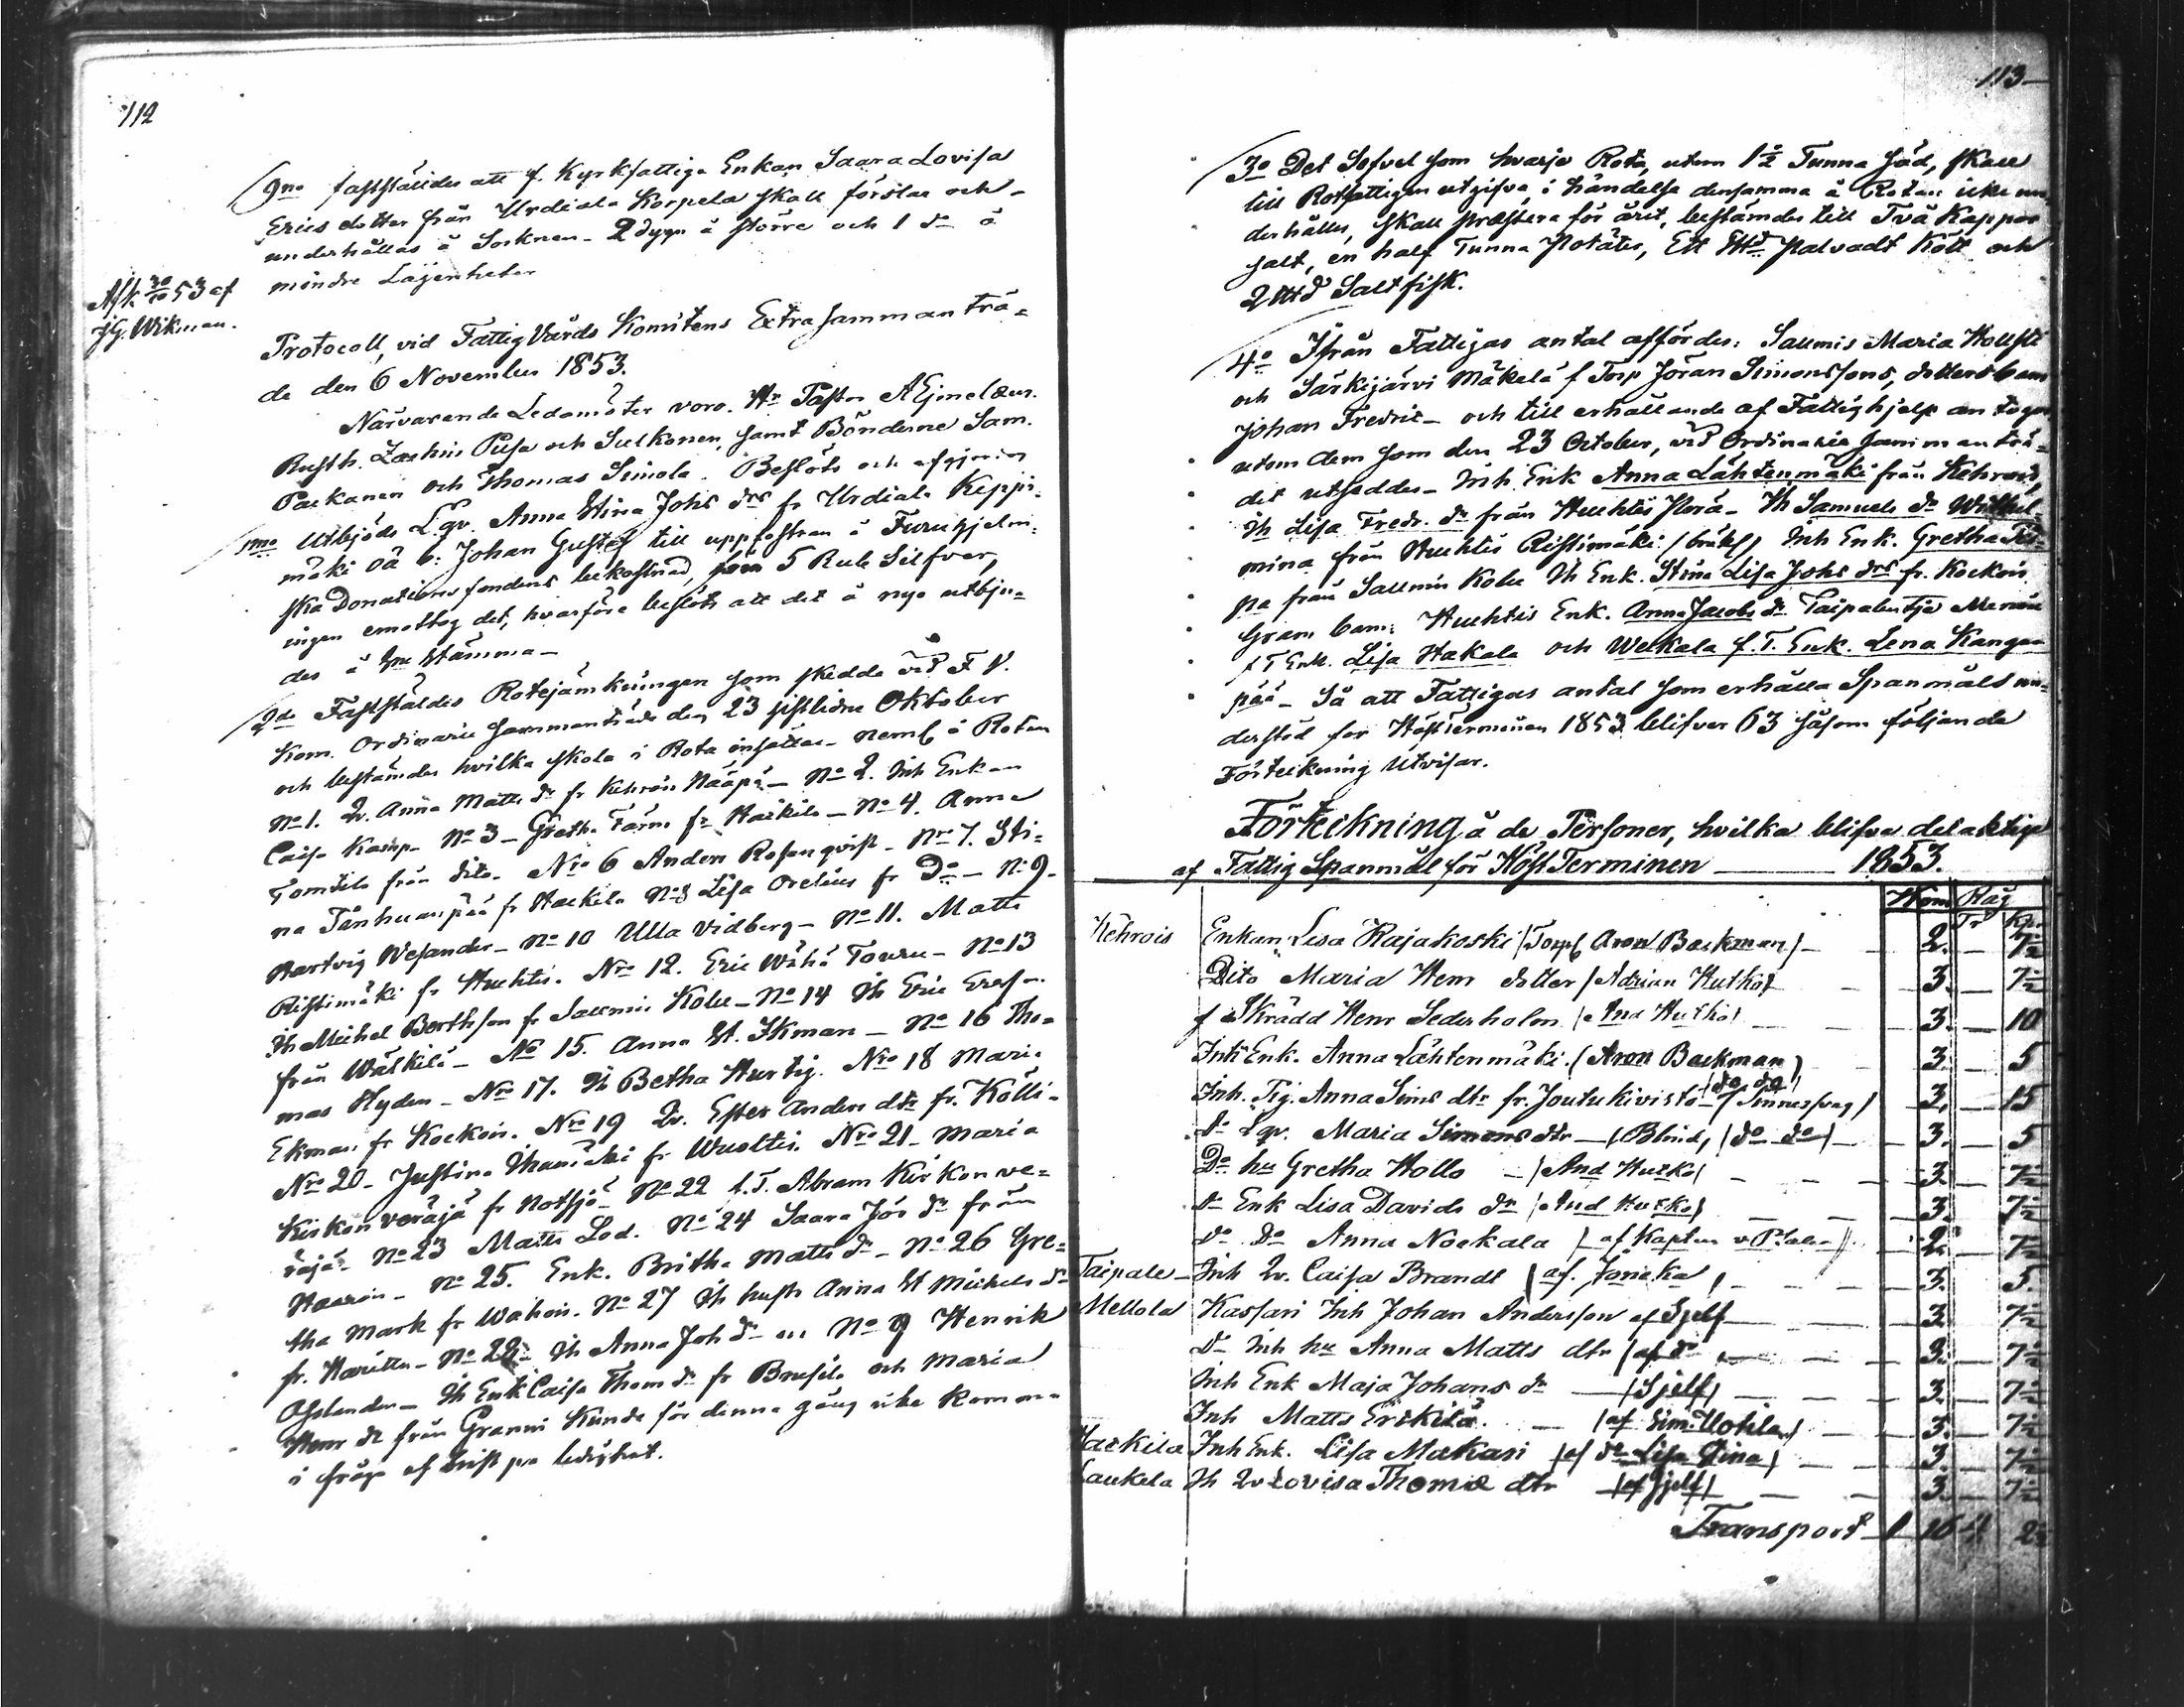 112
9no fastställdes att f. Kyrkfattiga Enkan Saara Lovisa
Ericsdotter från Urdiala Korpela skall förslas och
underhållas å Socknen - 2 dygn å större och 1 do å
mindre Lägenheter
Afk 30/10 53 af
J.G. Wikman.
Protocoll, vid FattigVårds Komitens Extra samman trä=
de den 6 November 1853.
Närvarande Ledamöter voro. Hr Pastor
Rusth. Zachris Pusa och Sulkonen, samt Bönderne Sam.
Packanen och Thomas Simola. Beslöts och afgjordes
1mo Utbjöds Lgv. Anna Stina Johs drs fr Urdiala Keppi=
mäki oä b: Johan Gustaf till uppfostran å Furuhjelm=
ska Donations fondens bekostnad, 5 Rub Silfver,
ingen emottog det, hvarföre beslöts att det å nyo utbju=
des å Stämma -
2do Fastställdes Rotejämkningen som skedde vid F V.
Kom. Ordinarie sammanträde den 23 sistlidne Oktober
och bestämdes hvilka skola i Rota insättas - neml å Rotan
No 1. Anna Matts dr fr Kehrois Nääpä - No 2. Inh Enkan
Caisa Kamp - No 3 - Greta Färm fr Hackila - No 4. Anna
Tomtila från dito - Nro 6 Anders Rosenqvist - Nro 7. Sti=
na Tanhuanpää fr Hackila No 8 Lisa Orelius fr Do - No 9.
Hartvig Wesander - No 10 Ulla Vidberg - No 11. Matts
Ristimäki fr Huhtis. Nro 12. Eric Wähä Touru - No 13
Ih Michel Berthson fr Saumis Kolu - No 14 Ih Eric Ersson
från Wälkilä - No 15. Anna St. Ikman - No 16 Tho=
mas Hyden - Nro 17. Ih Betha Hurtig. Nro 18 Maria
Ekman fr Kockois. Nro 19 Ester Anders dtr fr. Kölli -
Nro 20 - Justina fr Wuoltis. Nro 21 - Maria
Kirkonveräjä fr Notsjö - No 22 f.T. Abram Kirkonve=
räjä - No 23 Matts Lod. No 24 Saara Jör dr från
Haaron - No 25. Enk. Britha Matts dr - No 26 Gre=
tha Mark fr Wahois. No 27 Ih hust Anna St Michels dr
fr. - No 28 Ih Anna Joh dr No 9 Henrik
- Ih Enk Caisa Thom dr fr Brusila och Maria
Henr dr från Granni Kunde för denna gång icke komma
i fråga af brist på ledighet.
113
3o Det Sofvel som hvarje Rota, utom 1 1/2 Tunna Säd, skall
till Rotfattigen utgifva, i händelse densamma å Rotan icke un=
derhålles, skall præstera för året, bestämdes till Två Kappor
salt, en half Tunna Potäter, Ett Palvadt Kött och
2 Saltfisk.
4o Ifrån Fattigas antal affördes: Saumis Maria Hollsti
och Särkijärvi Mäkelä f Torp Jöran Simonssons, dotters barn
Johan Fredric - och till erhållande af Fattighjelp antogos
utom dem som den 23 October, vid Ordinarie sammanträ=
det utseddes - Inh. Enk Anna Lähtenmäki från Kehrois,
Ih Lisa Fredr. dr från Huhtis Isora - Ih Samuels dr Wilhel
mina från Huhtis Ristimäki (bråkl) Inh Enk. Gretha
pa från Saumis Kolu Ih Enk. Stina Lisa Johs drs fr. Kockois
Gram barn: Huhtis Enk. Anna Jacobs dr Taipalentja
f T Enk. Lisa Hakala och Weckala f. T. Enk. Lena Kangas
pää - Så att Fattigas antal som erhålla Spanmåls un=
derstöd för Höst Terminen 1853 blifver 63 såsom följande
Förteckning utvisar.
Förteckning å de Personer, hvilka blifva delaktige
af Fattig Spanmål för Höst Terminen 1853.
Råg
Tr Kpr
Kehrois Enkan Lisa Rajakoski /Torp Aron Backman/ 2. 7 1/2
Dito Maria Henr dotter /Adrian Hutko/ 3. 7 1/2
f Skrädd Henr Sederholm /And Hutko/ 3. 10
Inh Enk. Anna Lähtenmäki. (Aron Backman) 3. 5
Inh. Pig. Anna Sims dtr fr. Joutukivisto - /Sinnessvag/ /do do/ 3. 15
do Lqv. Maria Simons dtr - (Blind, /do do/ 3. 5
Do hu Gretha Hollo /And Hutko/ 3. 7 1/2
do Enk Lisa Davids dr /And Hutko/ 3. 7 1/2
do Do Anna Nockala /af Kapten v Platen/ 2. 7 1/2
Taipale Inh Caisa Brandt /af. Janeka/ 3. 5.
Mellola Kassari Inh Johan Andersson af Sjelf 3. 7 1/2
do Inh hu Anna Matts dtr /af do 3. 7 1/2
Inh Enk Maja Johans dr /Sjelf/ 3. 7 1/2
Inh Matts Erikilä. /af Sim. Uotila/ 3. 7 1/2
Hackila Inh Enk. Lisa Makari /af do Lisa Stina/ 3. 7 1/2
Laukela Ih Lovisa Thomas dtr /af Sjelf/ 3. 7 1/2
Transport 1 16 4